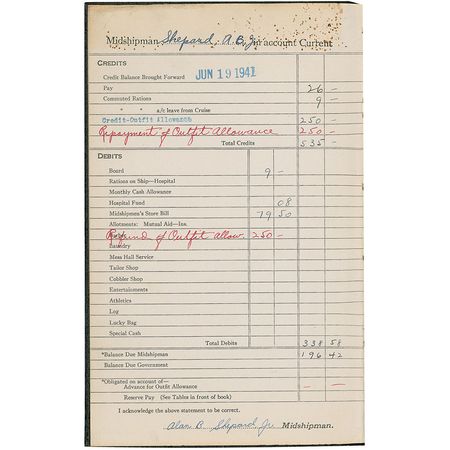 Midshipman Shepard, A. B. Jr. in account Current
CREDITS
Credit Balance Brought Forward JUN 19 1941
Pay 26 -
Commuted Rations 9 -
" " a/c leave from Cruise
Credit-Outfit Allowance 250 -
Repayment of Outfit Allowance 250 -
Total Credits 535 -
DEBITS
Board 9 -
Rations on Ship—Hospital
Monthly Cash Allowance
Hospital Fund 08
Midshipmen's Store Bill 79 50
Allotments: Mutual Aid—Ins.
Refund of Outfit Allow. 250 -
Laundry
Mess Hall Service
Tailor Shop
Cobbler Shop
Entertainments
Athletics
Log
Lucky Bag
Special Cash
Total Debits 338 58
*Balance Due Midshipman 196 42
Balance Due Government
*Obligated on account of—
Advance for Outfit Allowance - -
Reserve Pay (See Tables in front of book)
I acknowledge the above statement to be correct.
Alan B Shepard Jr. Midshipman.